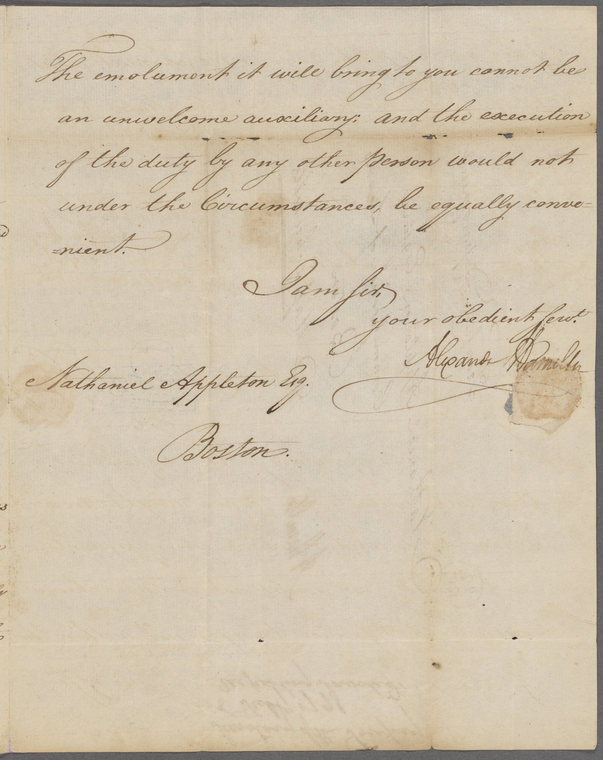 The emolument it will bring to you cannot be
an unwelcome auxiliary: and the execution
of the duty by any other person would not
under the Circumstances, be equally conve-
=nient.
I am Sir,
your obedient Servt.
Alexander Hamilton
Nathaniel Appleton Esq.
Boston.